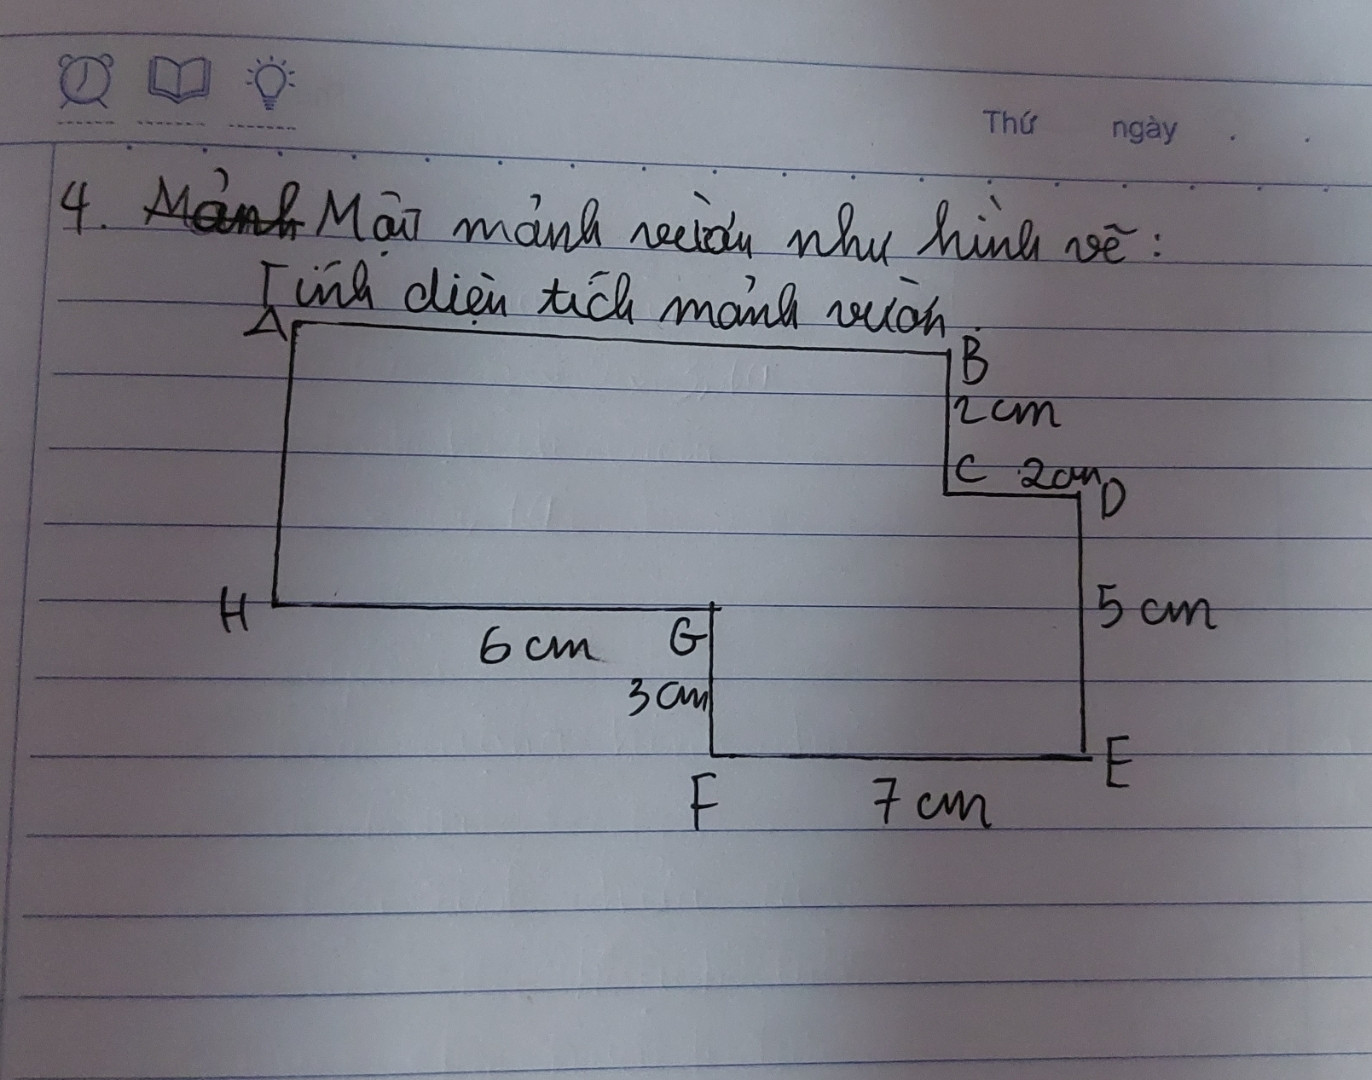 Thứ ngày . .
4. Mảnh Một mảnh vườn như hình vẽ:
Tính diện tích mảnh vườn.
A
B
2 cm
C 2cm D
H
5 cm
6 cm G
3 cm
E
F 7 cm